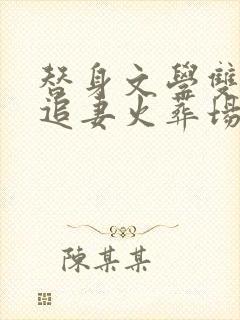 替身文學雙
追妻火葬場
陳某某